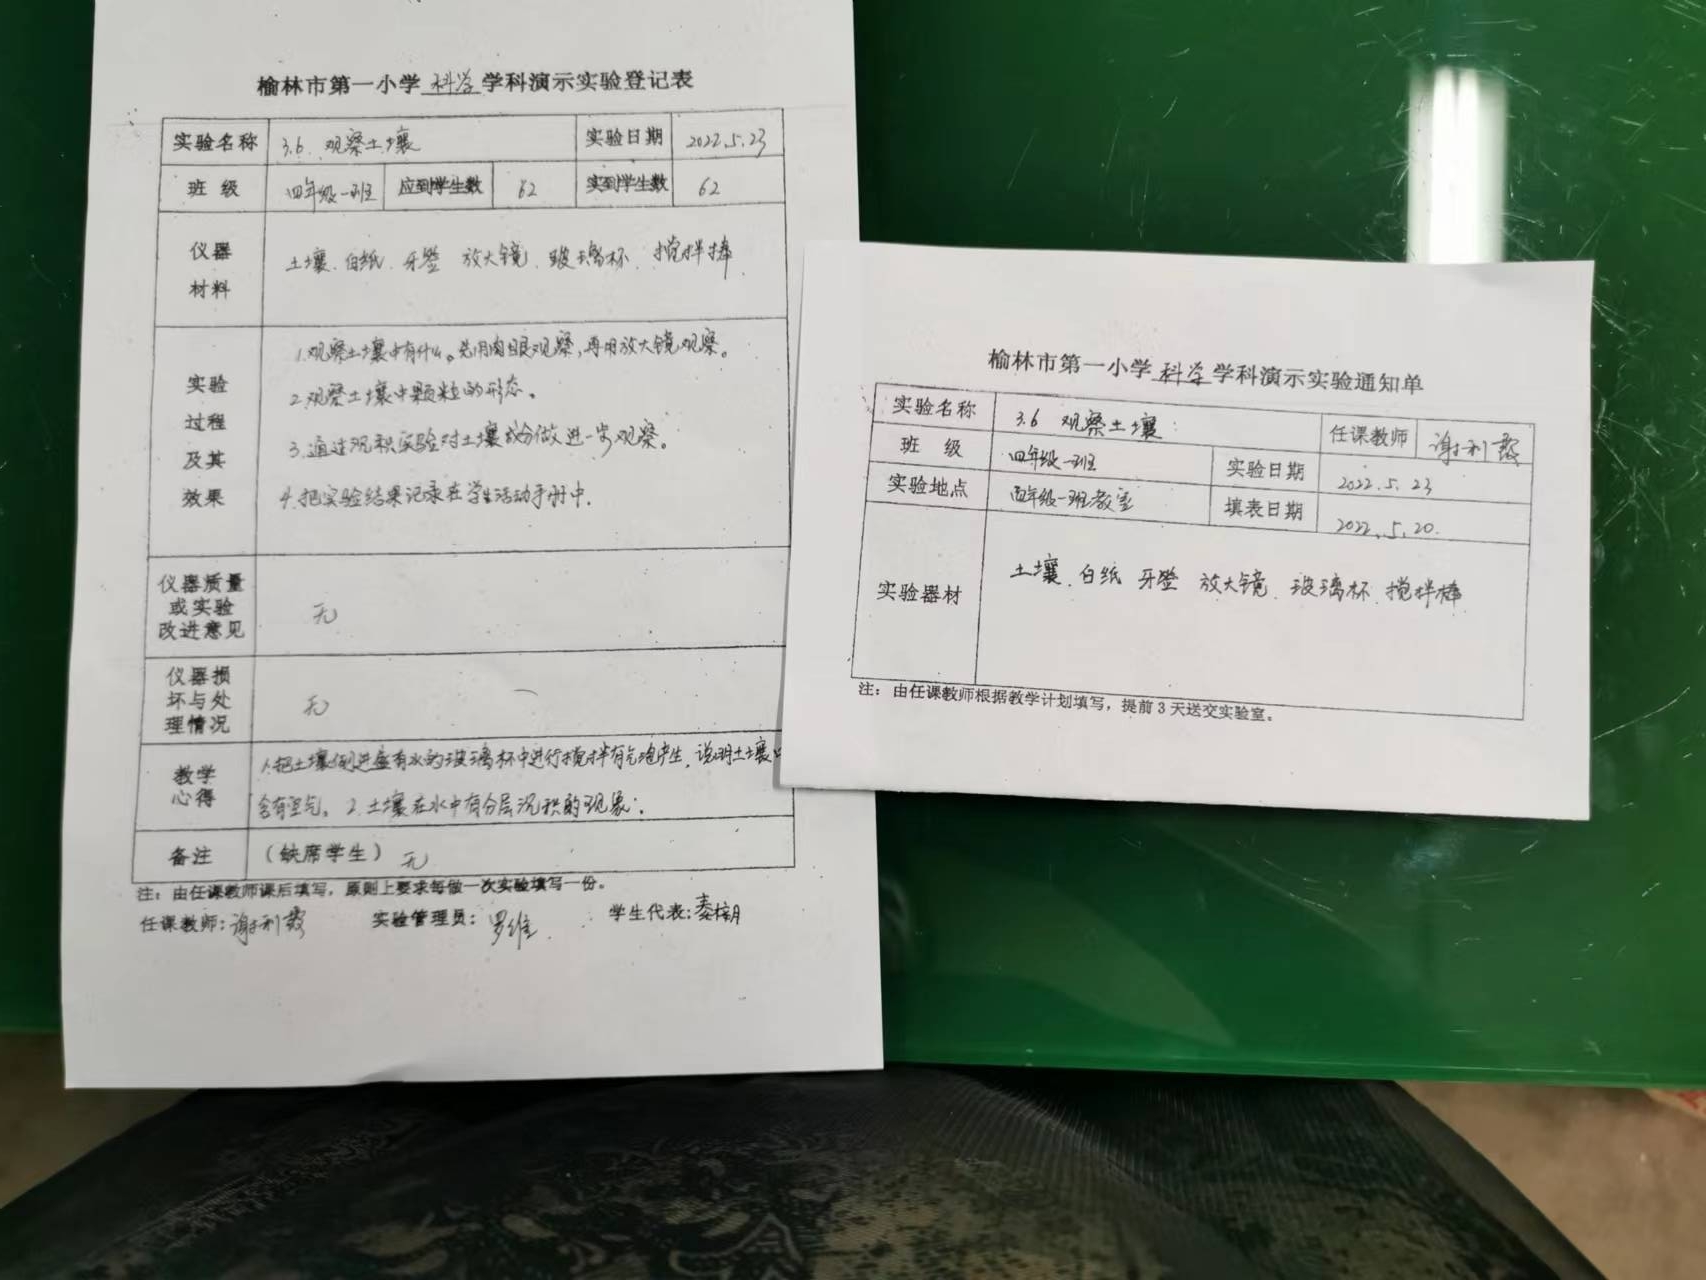 榆林市第一小学 科学 学科演示实验登记表
实验名称 3.6 观察土壤 实验日期 2022.5.23
班 级 四年级一班 应到学生数 62 实到学生数 62
仪器
材料
土壤、白纸、牙签 放大镜、玻璃杯、搅拌棒
实验
过程
及其
效果
1.观察土壤中有什么。先用肉眼观察,再用放大镜观察。
2.观察土壤中颗粒的形态。
3.通过沉积实验对土壤成分做进一步观察。
4.把实验结果记录在学生活动手册中.
仪器质量
或实验
改进意见
无
仪器损
坏与处
理情况
无
教学
心得
1.把土壤倒进盛有水的玻璃杯中进行搅拌有气泡产生,说明土壤中
含有空气。2.土壤在水中有分层沉积的现象.
备注 (缺席学生) 无
注:由任课教师课后填写,原则上要求每做一次实验填写一份。
任课教师:谢利 实验管理员:罗维 学生代表:秦
榆林市第一小学 科学 学科演示实验通知单
实验名称 3.6 观察土壤 任课教师 谢利
班 级 四年级一班 实验日期 2022.5.23
实验地点 四年级一班教室 填表日期 2022.5.20.
实验器材 土壤、白纸 牙签 放大镜、玻璃杯、搅拌棒
注:由任课教师根据教学计划填写,提前3天送交实验室。